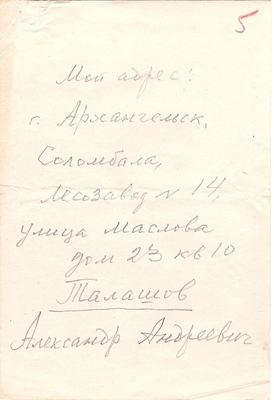 5
Мой адрес:
г. Архангельск,
Соломбала,
Лесозавод N 14,
улица Маслова
дом 23 кв 10
Талашов
Александр Андреевич